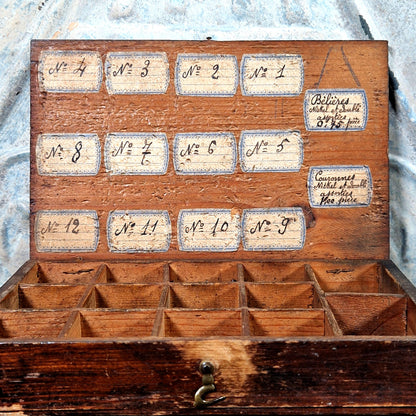 Nº 4
Nº 3
Nº 2
Nº 1
Bélières
Nickel et Doublé
assorties
0.45 pièce
Nº 8
Nº 7
Nº 6
Nº 5
Couronnes
Nickel et Doublé
assorties
pièce
Nº 12
Nº 11
Nº 10
Nº 9